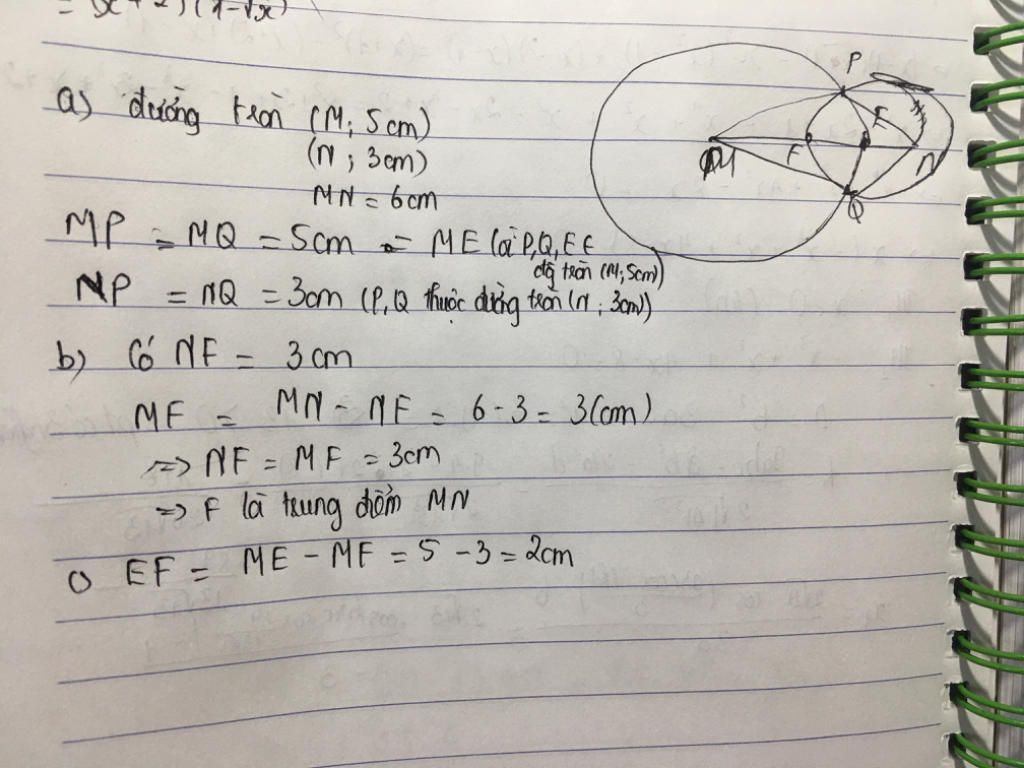 = (x + 2)(1-√x)
a) đường tròn (M; 5cm)
(N; 3cm)
MN = 6cm
MP = MQ = 5cm = ME (là P,Q,E ∈
đg tròn (M;5cm)
NP = NQ = 3cm (P,Q thuộc đường tròn (N; 3cm))
b) Có NF = 3cm
MF = MN - NF = 6-3 = 3(cm)
=> NF = MF = 3cm
=> F là trung điểm MN
c) EF = ME - MF = 5-3 = 2cm
P
E
M
F
N
Q